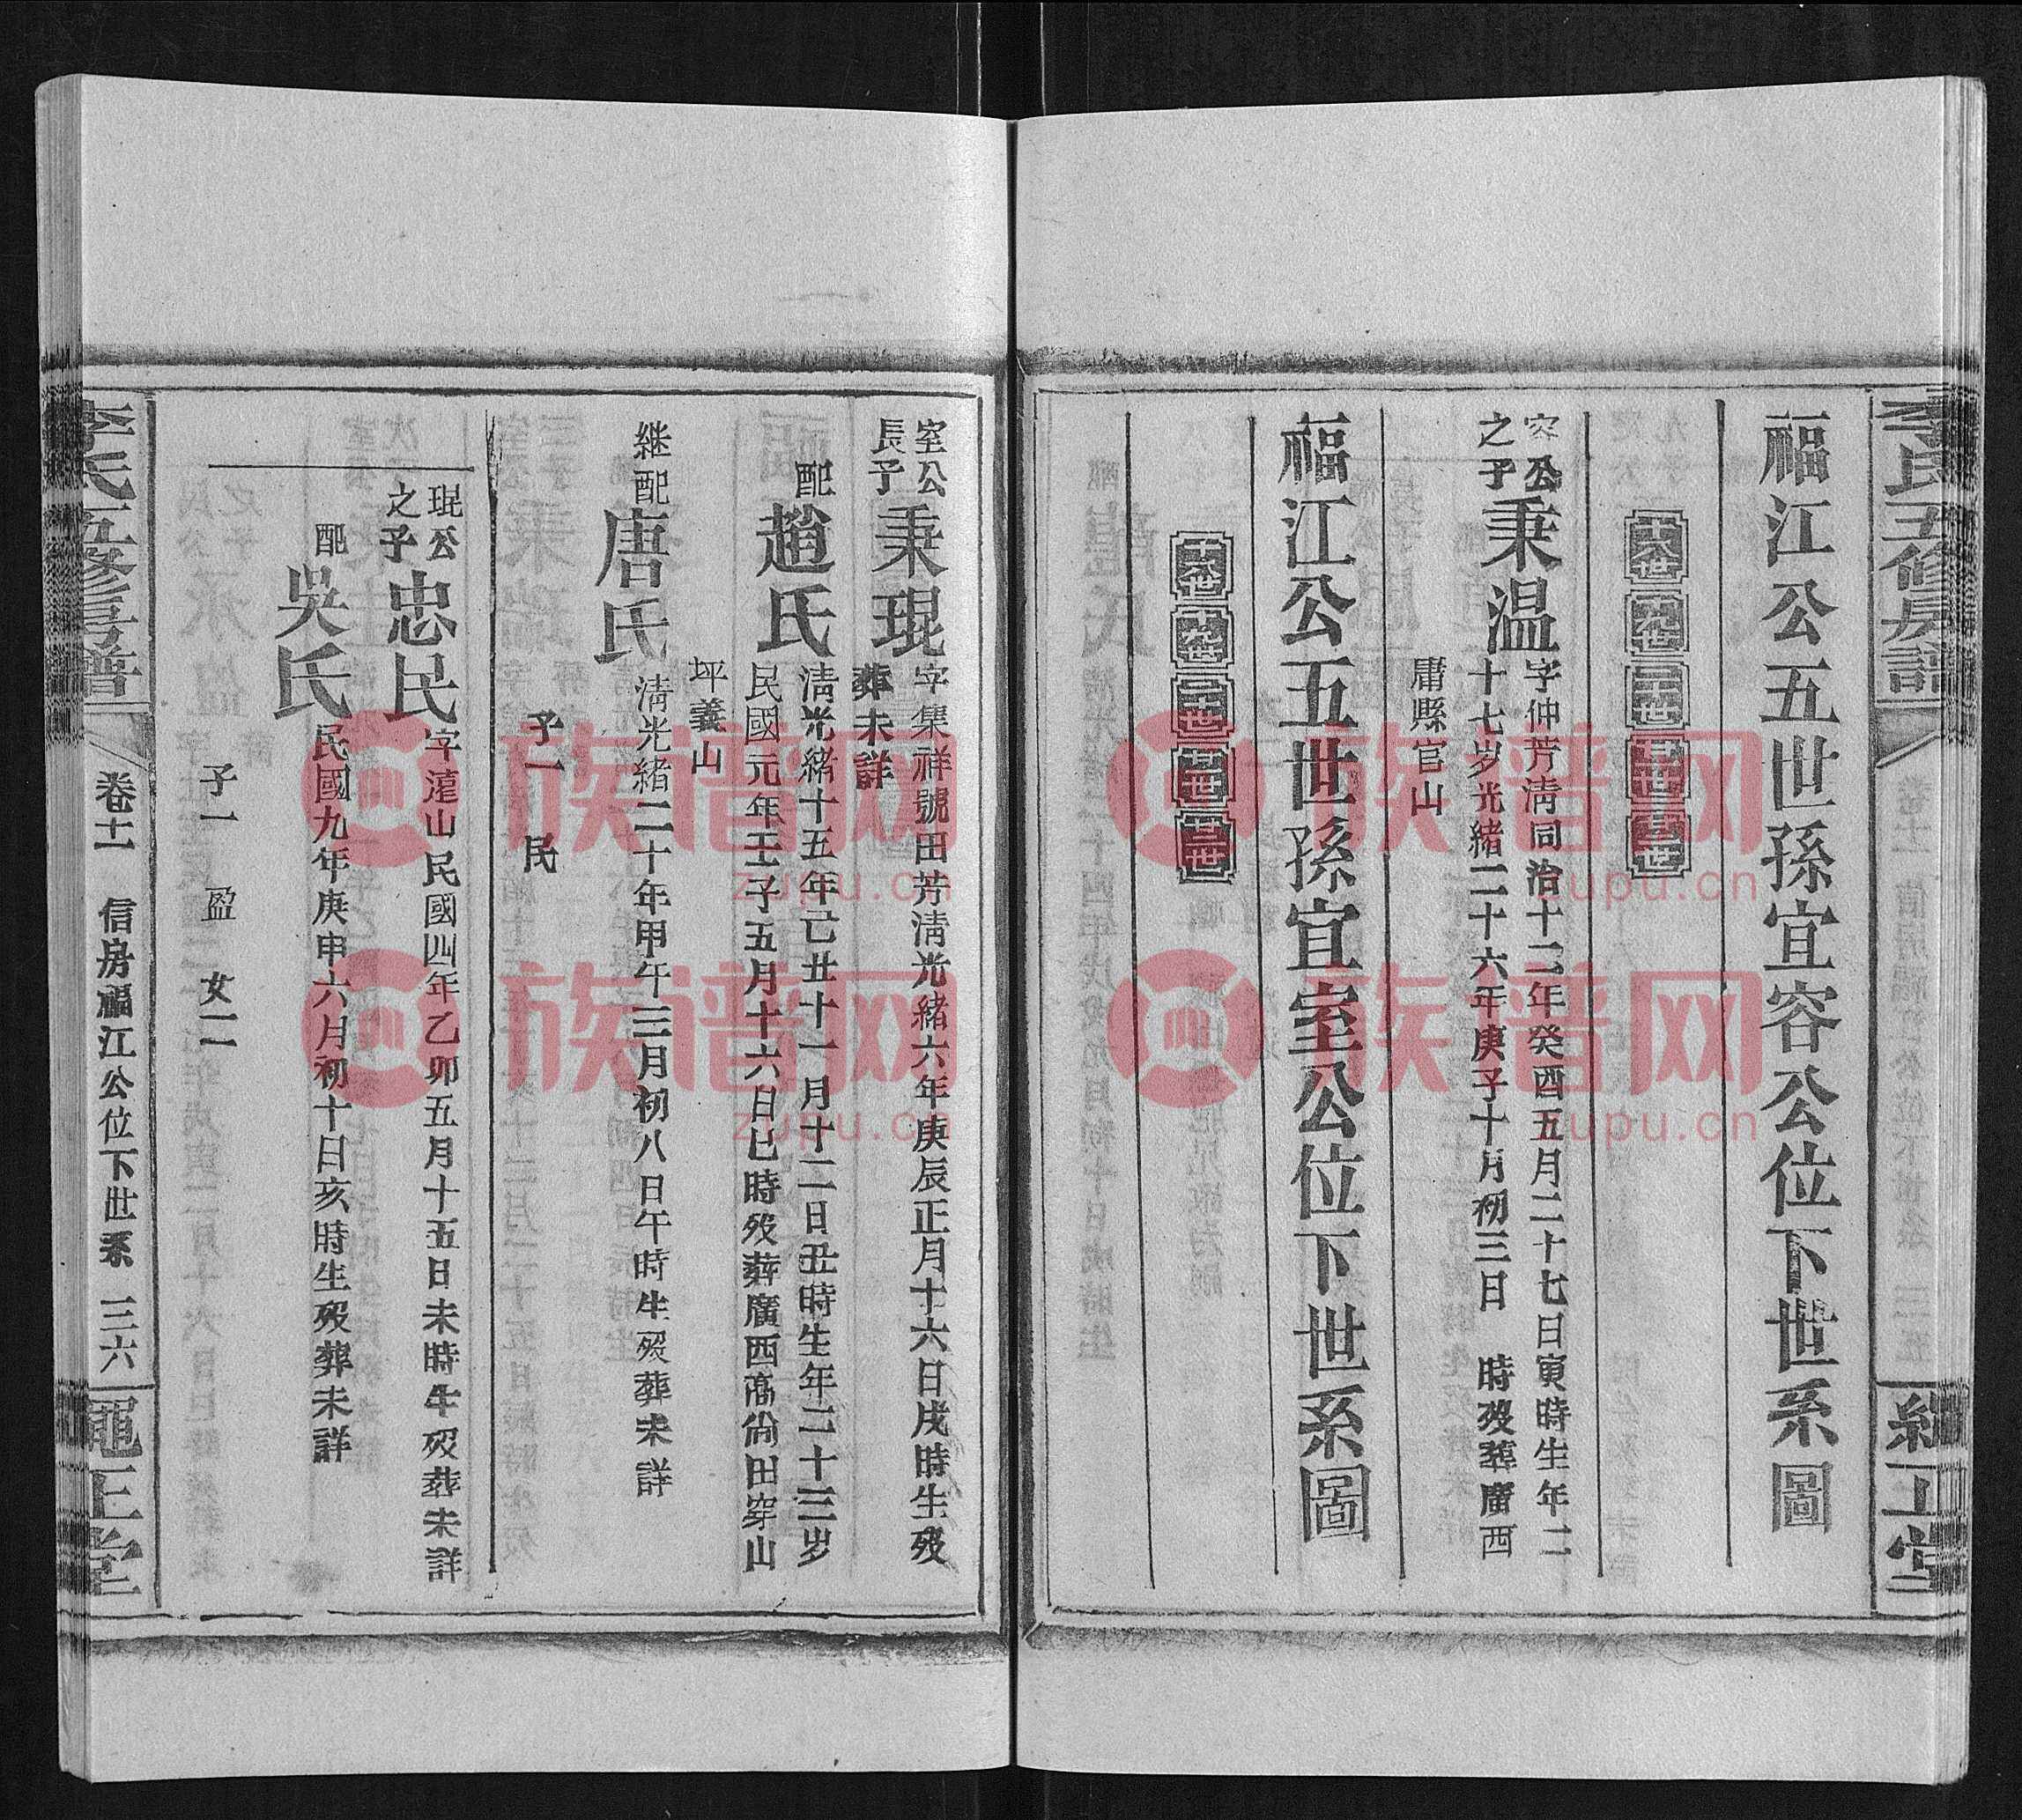 李氏五修房譜
福江公五世孫宜容公位下世系圖
十八世 十九世 二十世 廿一世 廿二世
容公之子
秉溫
字仲芳清同治十二年癸酉五月二十七日寅時生年二
十七岁光緒二十六年庚子十月初三日 時歿葬廣西
庸縣官山
福江公五世孫宜室公位下世系圖
十八世 十九世 二十世 廿一世 廿二世
室公長子
秉琨
字集祥號田芳清光緒六年庚辰正月十六日戌時生歿
葬未詳
配
趙氏
清光緒十五年己丑十一月十二日丑時生年二十三岁
民國元年壬子五月十六日巳時歿葬廣西高尚田穿山
坪義山
継配
唐氏
清光緒二十年甲午三月初八日午時生歿葬未詳
子一 民
琨公之子
忠民
字遠山民國四年乙卯五月十五日未時生歿葬未詳
配
吳氏
民國九年庚申六月初十日亥時生歿葬未詳
子一 盈 女二
李氏五修房譜
卷十一 信房福江公位下世系 三六
正堂
族谱网
zupu.cn
族谱网
zupu.cn
族谱网
zupu.cn
族谱网
zupu.cn